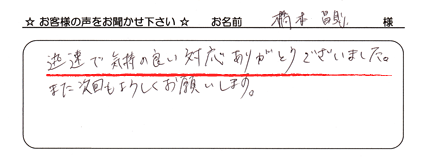 ☆ お客様の声をお聞かせ下さい ☆ お名前 橋本 昌則 様
迅速で気持の良い対応ありがとうございました。
また次回もよろしくお願いします。